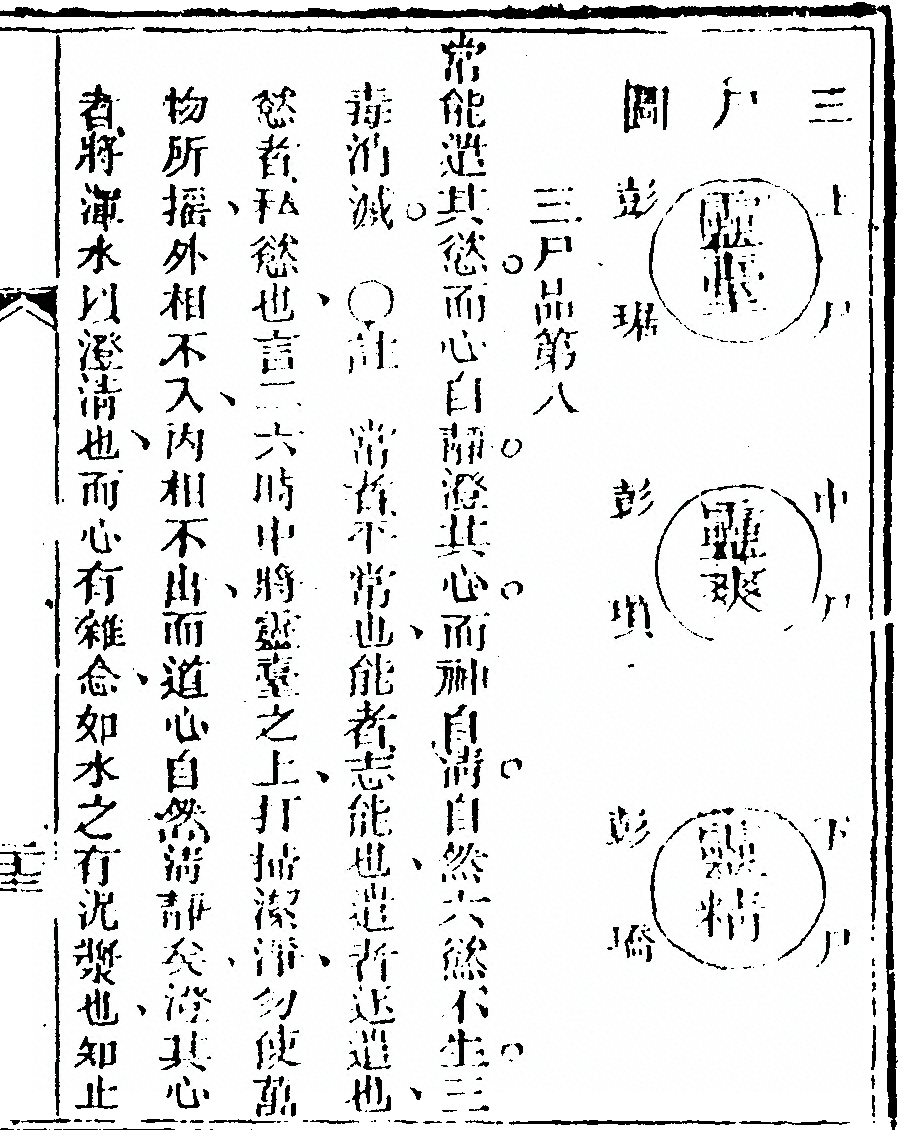 三尸圖
上尸
彭琚
中尸
靈爽
彭
下尸
靈精
彭
三尸品第八
常能遣其慾而心自靜。澄其心。而神自清。自然六慾不生。三
毒消滅。 〇註 常者不常也、能者志能也、遣者逐遣也、
慾者私慾也、言二六時中將靈臺之上、打掃潔淨、勿使萬
物所搖、外相不入、内相不出、而道心自然清靜矣、澄其心
者將渾水以澄清也、而心有雜念、如水之有泥漿也、知止